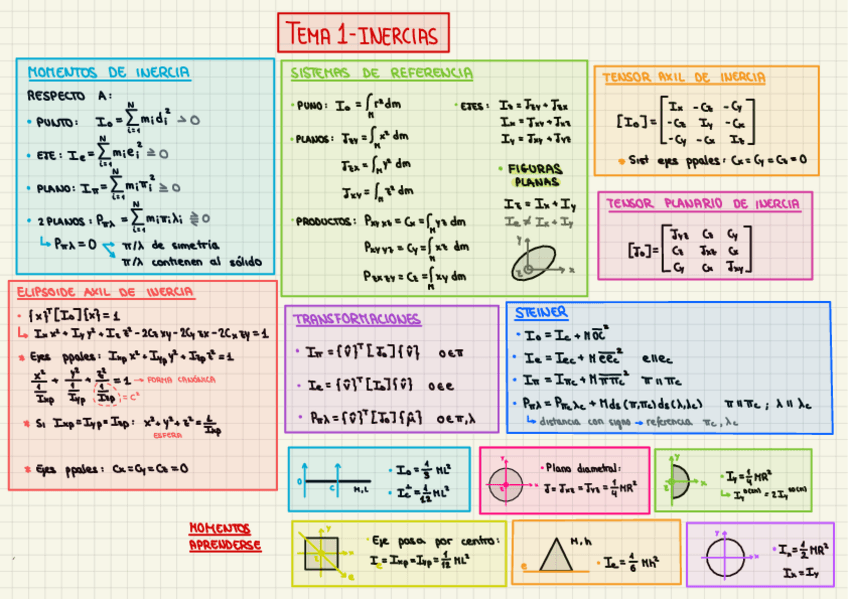 TEMA 1-INERCIAS
MOMENTOS DE INERCIA
RESPECTO A:
• PUNTO: I₀ = Σᵢ₌₁ᴺ mᵢdᵢ² ≥ 0
• EJE: Iₑ = Σᵢ₌₁ᴺ mᵢeᵢ² ≥ 0
• PLANO: I_π = Σᵢ₌₁ᴺ mᵢπᵢ² ≥ 0
• 2 PLANOS: P_πλ = Σᵢ₌₁ᴺ mᵢπᵢλᵢ ⋛ 0
↳ P_πλ = 0 π/λ de simetría
π/λ contienen al sólido
SISTEMAS DE REFERENCIA
• PUNO: I₀ = ∫_M r² dm
• PLANOS: J_zy = ∫_M x² dm
J_zx = ∫_M y² dm
J_xy = ∫_M z² dm
• PRODUCTOS: P_xy xz = Cx = ∫_M yz dm
P_xy yz = Cy = ∫_M xz dm
P_zx zy = Cz = ∫_M xy dm
• EJES: Iz = J_zy + J_zx
Ix = J_xy + J_xz
Iy = J_xy + J_yz
• FIGURAS
PLANAS
Iz = Ix + Iy
Ie ≠ Ix + Iy
y
z
x
TENSOR AXIL DE INERCIA
[I₀] = [Ix -Cz -Cy
-Cz Iy -Cx
-Cy -Cx Iz]
* Sist ejes ppales: Cx = Cy = Cz = 0
TENSOR PLANARIO DE INERCIA
[J₀] = [Jyz Cz Cy
Cz Jxz Cx
Cy Cx Jxy]
ELIPSOIDE AXIL DE INERCIA
• {x}ᵀ[I₀]{x} = 1
↳ Ix x² + Iy y² + Iz z² - 2Cz xy - 2Cy zx - 2Cx zy = 1
* Ejes ppales: Ixp x² + Iyp y² + Izp z² = 1
x²/(1/Ixp) + y²/(1/Iyp) + z²/(1/Izp) = 1 → FORMA CANÓNICA
= c²
* Si Ixp = Iyp = Izp: x² + y² + z² = 1/Ixp
ESFERA
* Ejes ppales: Cx = Cy = Cz = 0
TRANSFORMACIONES
• I_π = {û}ᵀ[J₀]{û} o ∈ π
• Ie = {û}ᵀ[I₀]{û} o ∈ e
• P_πλ = {û}ᵀ[J₀]{μ̂} o ∈ π, λ
STEINER
• I₀ = Ic + M OC²
• Ie = Iec + M eec² e ∥ ec
• I_π = I_πc + M ππc² π ∥ πc
• P_πλ = P_πcλc + M ds(π,πc) ds(λ,λc) π ∥ πc ; λ ∥ λc
↳ distancia con signo → referencia πc, λc
O
C
M, L
• I₀ = 1/3 ML²
• Ic = 1/12 ML²
y
x
• Plano diametral:
J = Jxz = Jyz = 1/4 MR²
• Iy = 1/4 MR²
MOMENTOS
APRENDERSE
y
x
e
• Eje pasa por centro:
I = Ixp = Iyp = 1/12 ML²
M, h
e
• Ie = 1/6 Mh²
y
x
• Ix = 1/2 MR²
Ix = Iy